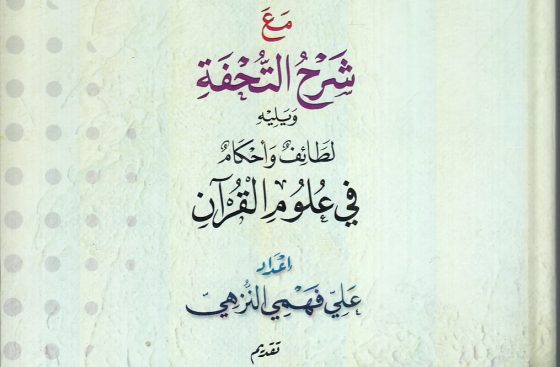 مَعَ
شَرْحُ التُّحْفَةِ
وَيَلِيْهِ
لَطَائِفٌ وَأَحْكَامٌ
فِي عُلُومِ الْقُرْآنِ
إعْدَاد
عَلِيّ فَهْمِي النُّزْهِيّ
تقديم